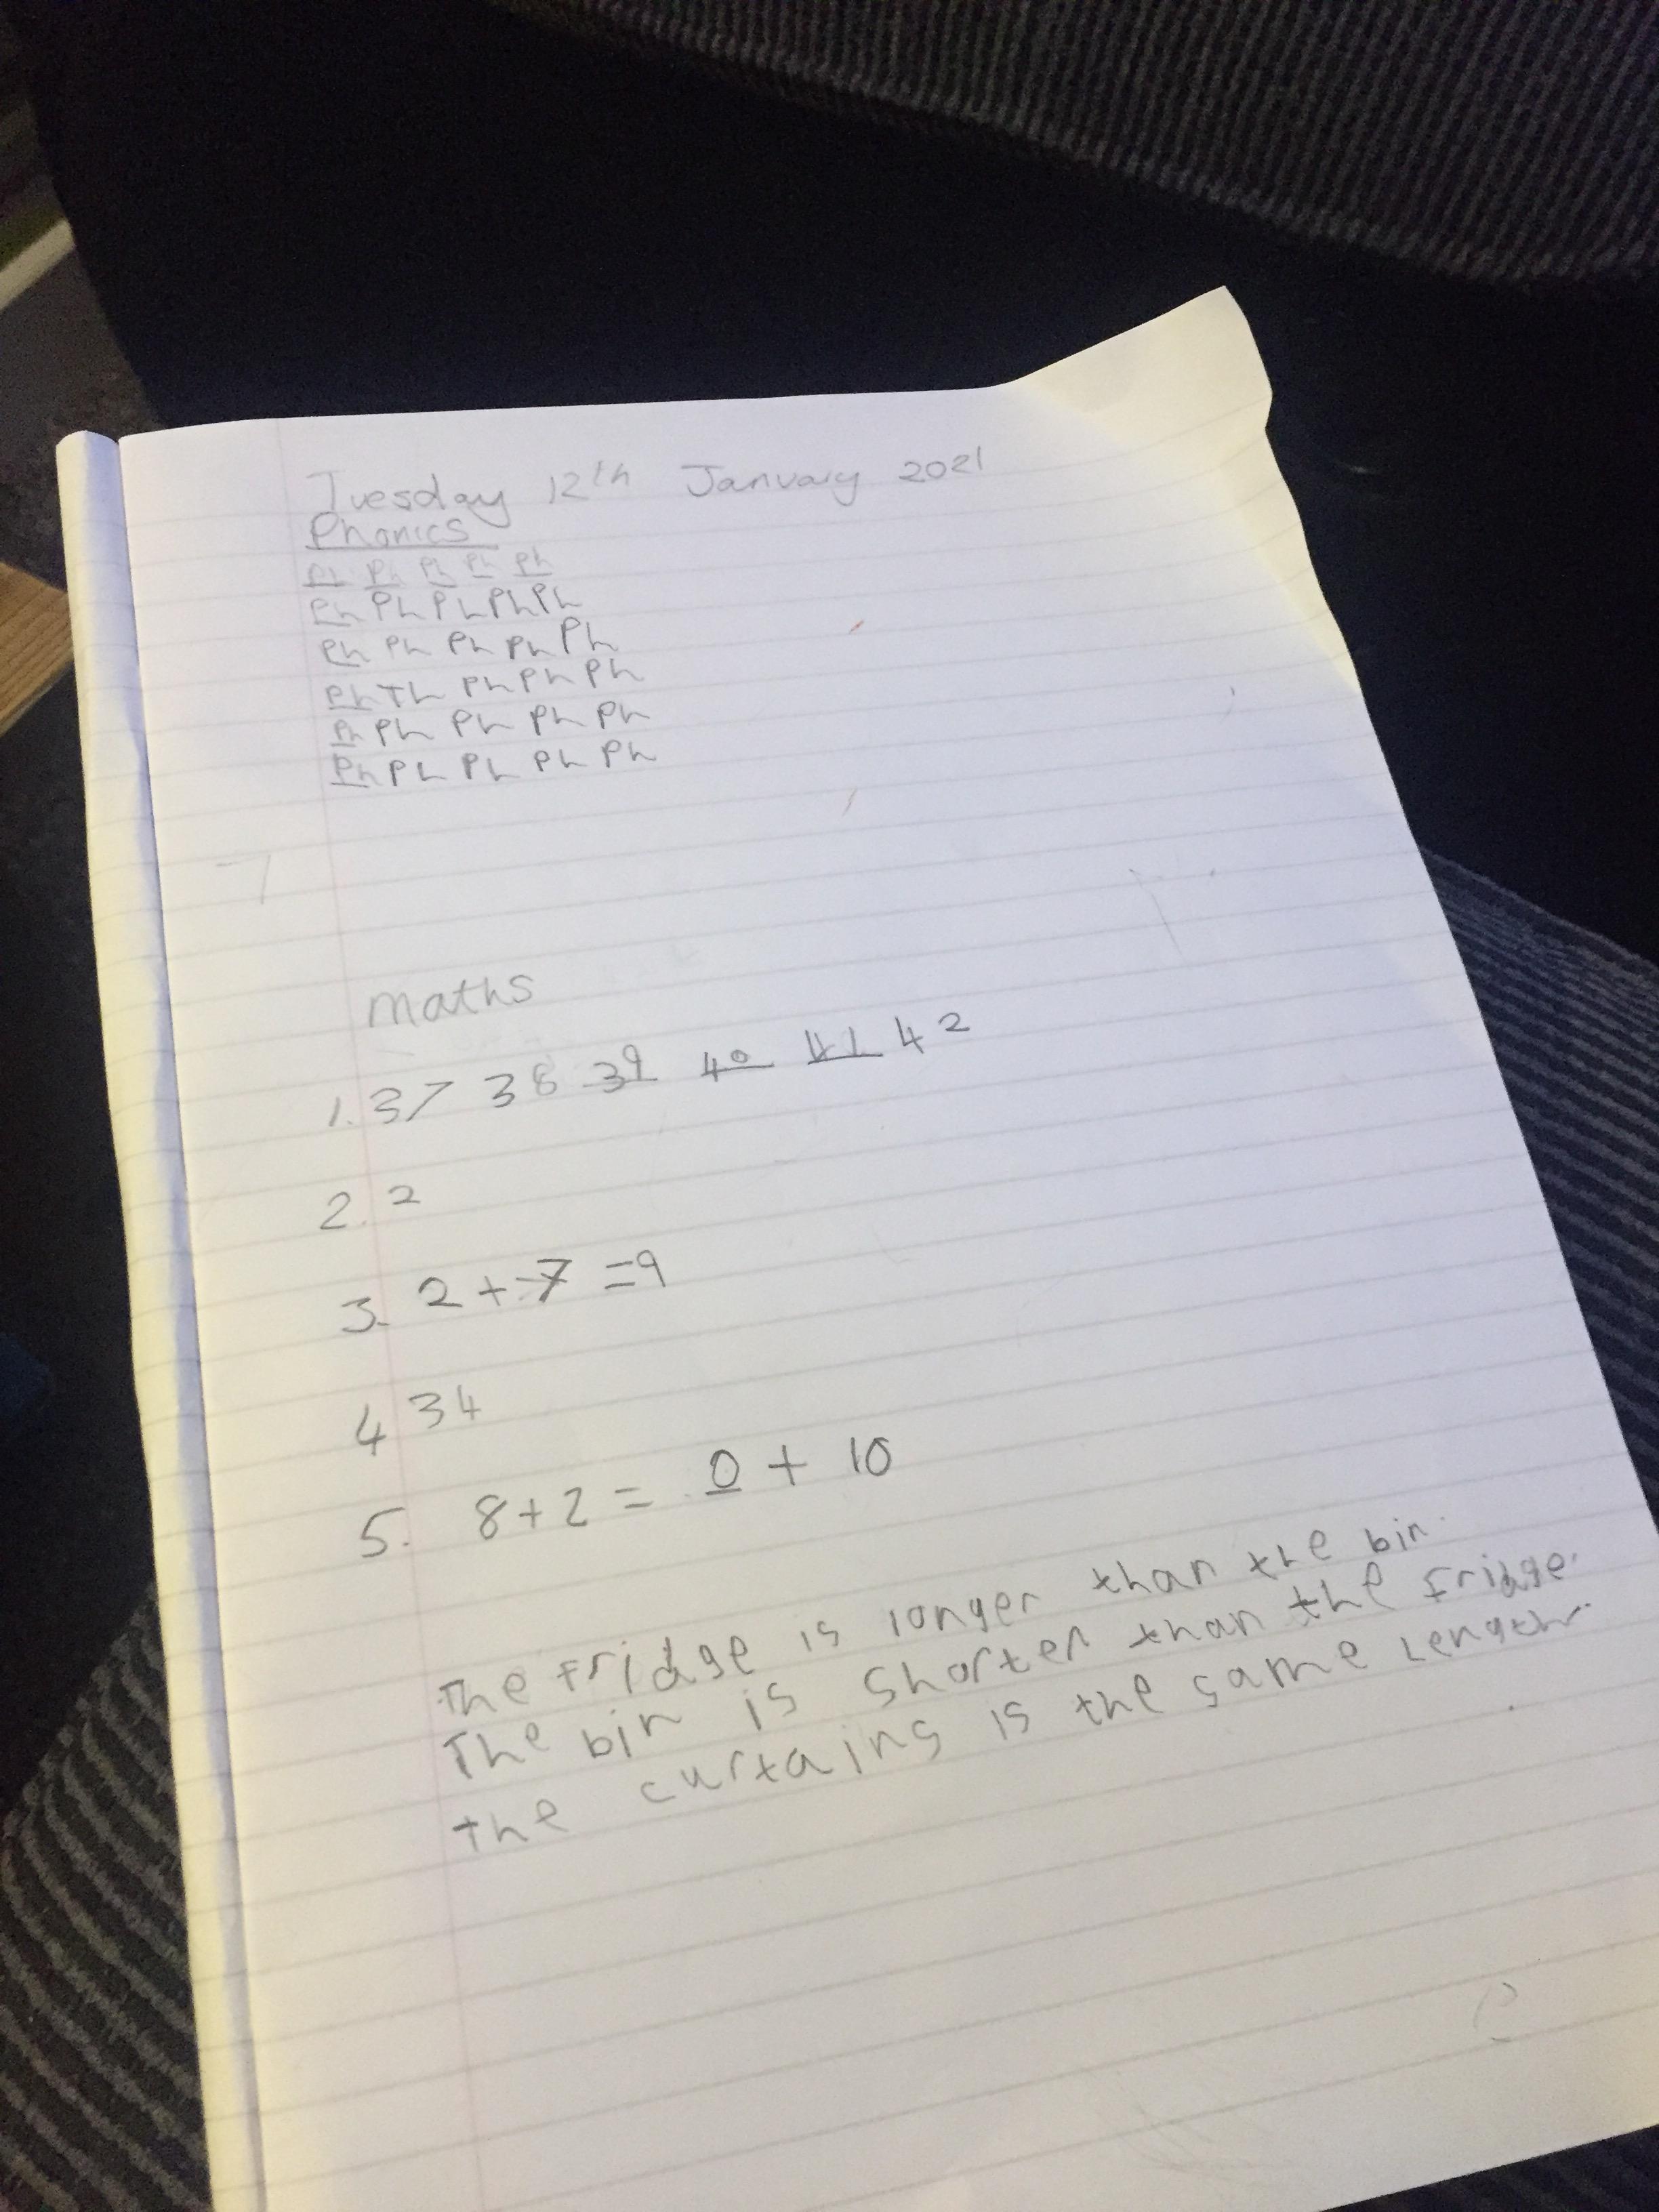 Tuesday 12th January 2021
Phonics
Ph Ph Ph Ph Ph
Ph Ph Ph Ph Ph
Ph Ph Ph Ph Ph
Ph Th Ph Ph Ph
Ph Ph Ph Ph Ph
Ph Ph Ph Ph Ph
7
maths
1. 37 38 39 40 41 42
2. 2
3. 2 + 7 = 9
4 34
5. 8 + 2 = 0 + 10
The fridge is longer than the bin.
The bin is shorter than the fridge.
the curtains is the same length.